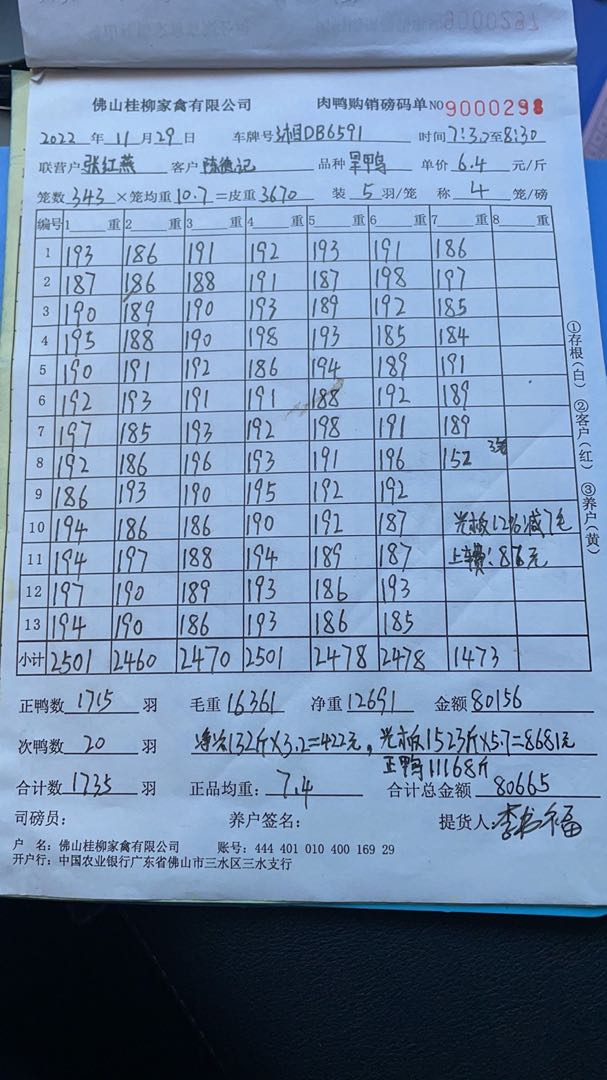 佛山桂柳家禽有限公司 肉鸭购销磅码单 NO 9000298
2022 年 11 月 29 日 车牌号 湘DB6591 时间 7:30至8:30
联营户 张红燕 客户 陈德记 品种 旱鸭 单价 6.4 元/斤
笼数 343 ×笼均重 10.7 =皮重 3670 装 5 羽/笼 称 4 笼/磅
编号 1 重 2 重 3 重 4 重 5 重 6 重 7 重 8 重
1 193 186 191 192 193 191 186
2 187 186 188 191 187 198 197
3 190 189 190 193 189 192 185
4 195 188 190 198 193 185 184
5 190 191 192 186 194 189 191
6 192 193 191 191 188 192 189
7 197 185 193 192 198 191 189
8 192 186 196 193 191 196 152 3笼
9 186 193 190 195 192 192
10 194 186 186 190 192 187 光板12%减7毛
11 194 197 188 194 189 187 上车费:876元
12 197 190 189 193 186 193
13 194 190 186 193 186 185
小计 2501 2460 2470 2501 2478 2478 1473
①存根(白) ②客户(红) ③养户(黄)
正鸭数 1715 羽 毛重 16361 净重 12691 金额 80156
次鸭数 20 羽 132斤×3.2=422元, 光板1523斤×5.7=8681元
正鸭11168斤
合计数 1735 羽 正品均重: 7.4 合计总金额 80665
司磅员: 养户签名: 提货人: 李书福
户 名: 佛山桂柳家禽有限公司 账号: 444 401 010 400 169 29
开户行: 中国农业银行广东省佛山市三水区三水支行